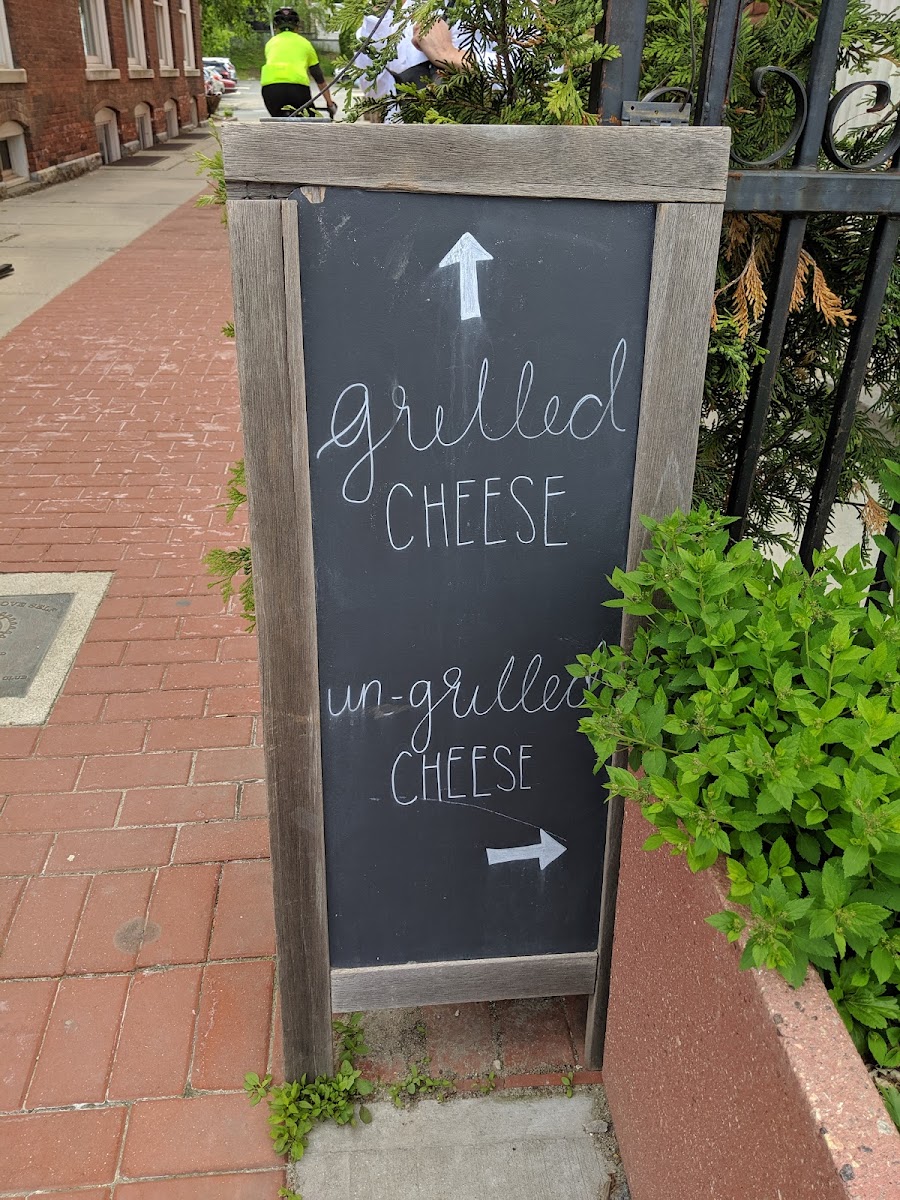 grilled
CHEESE
un-grilled
CHEESE